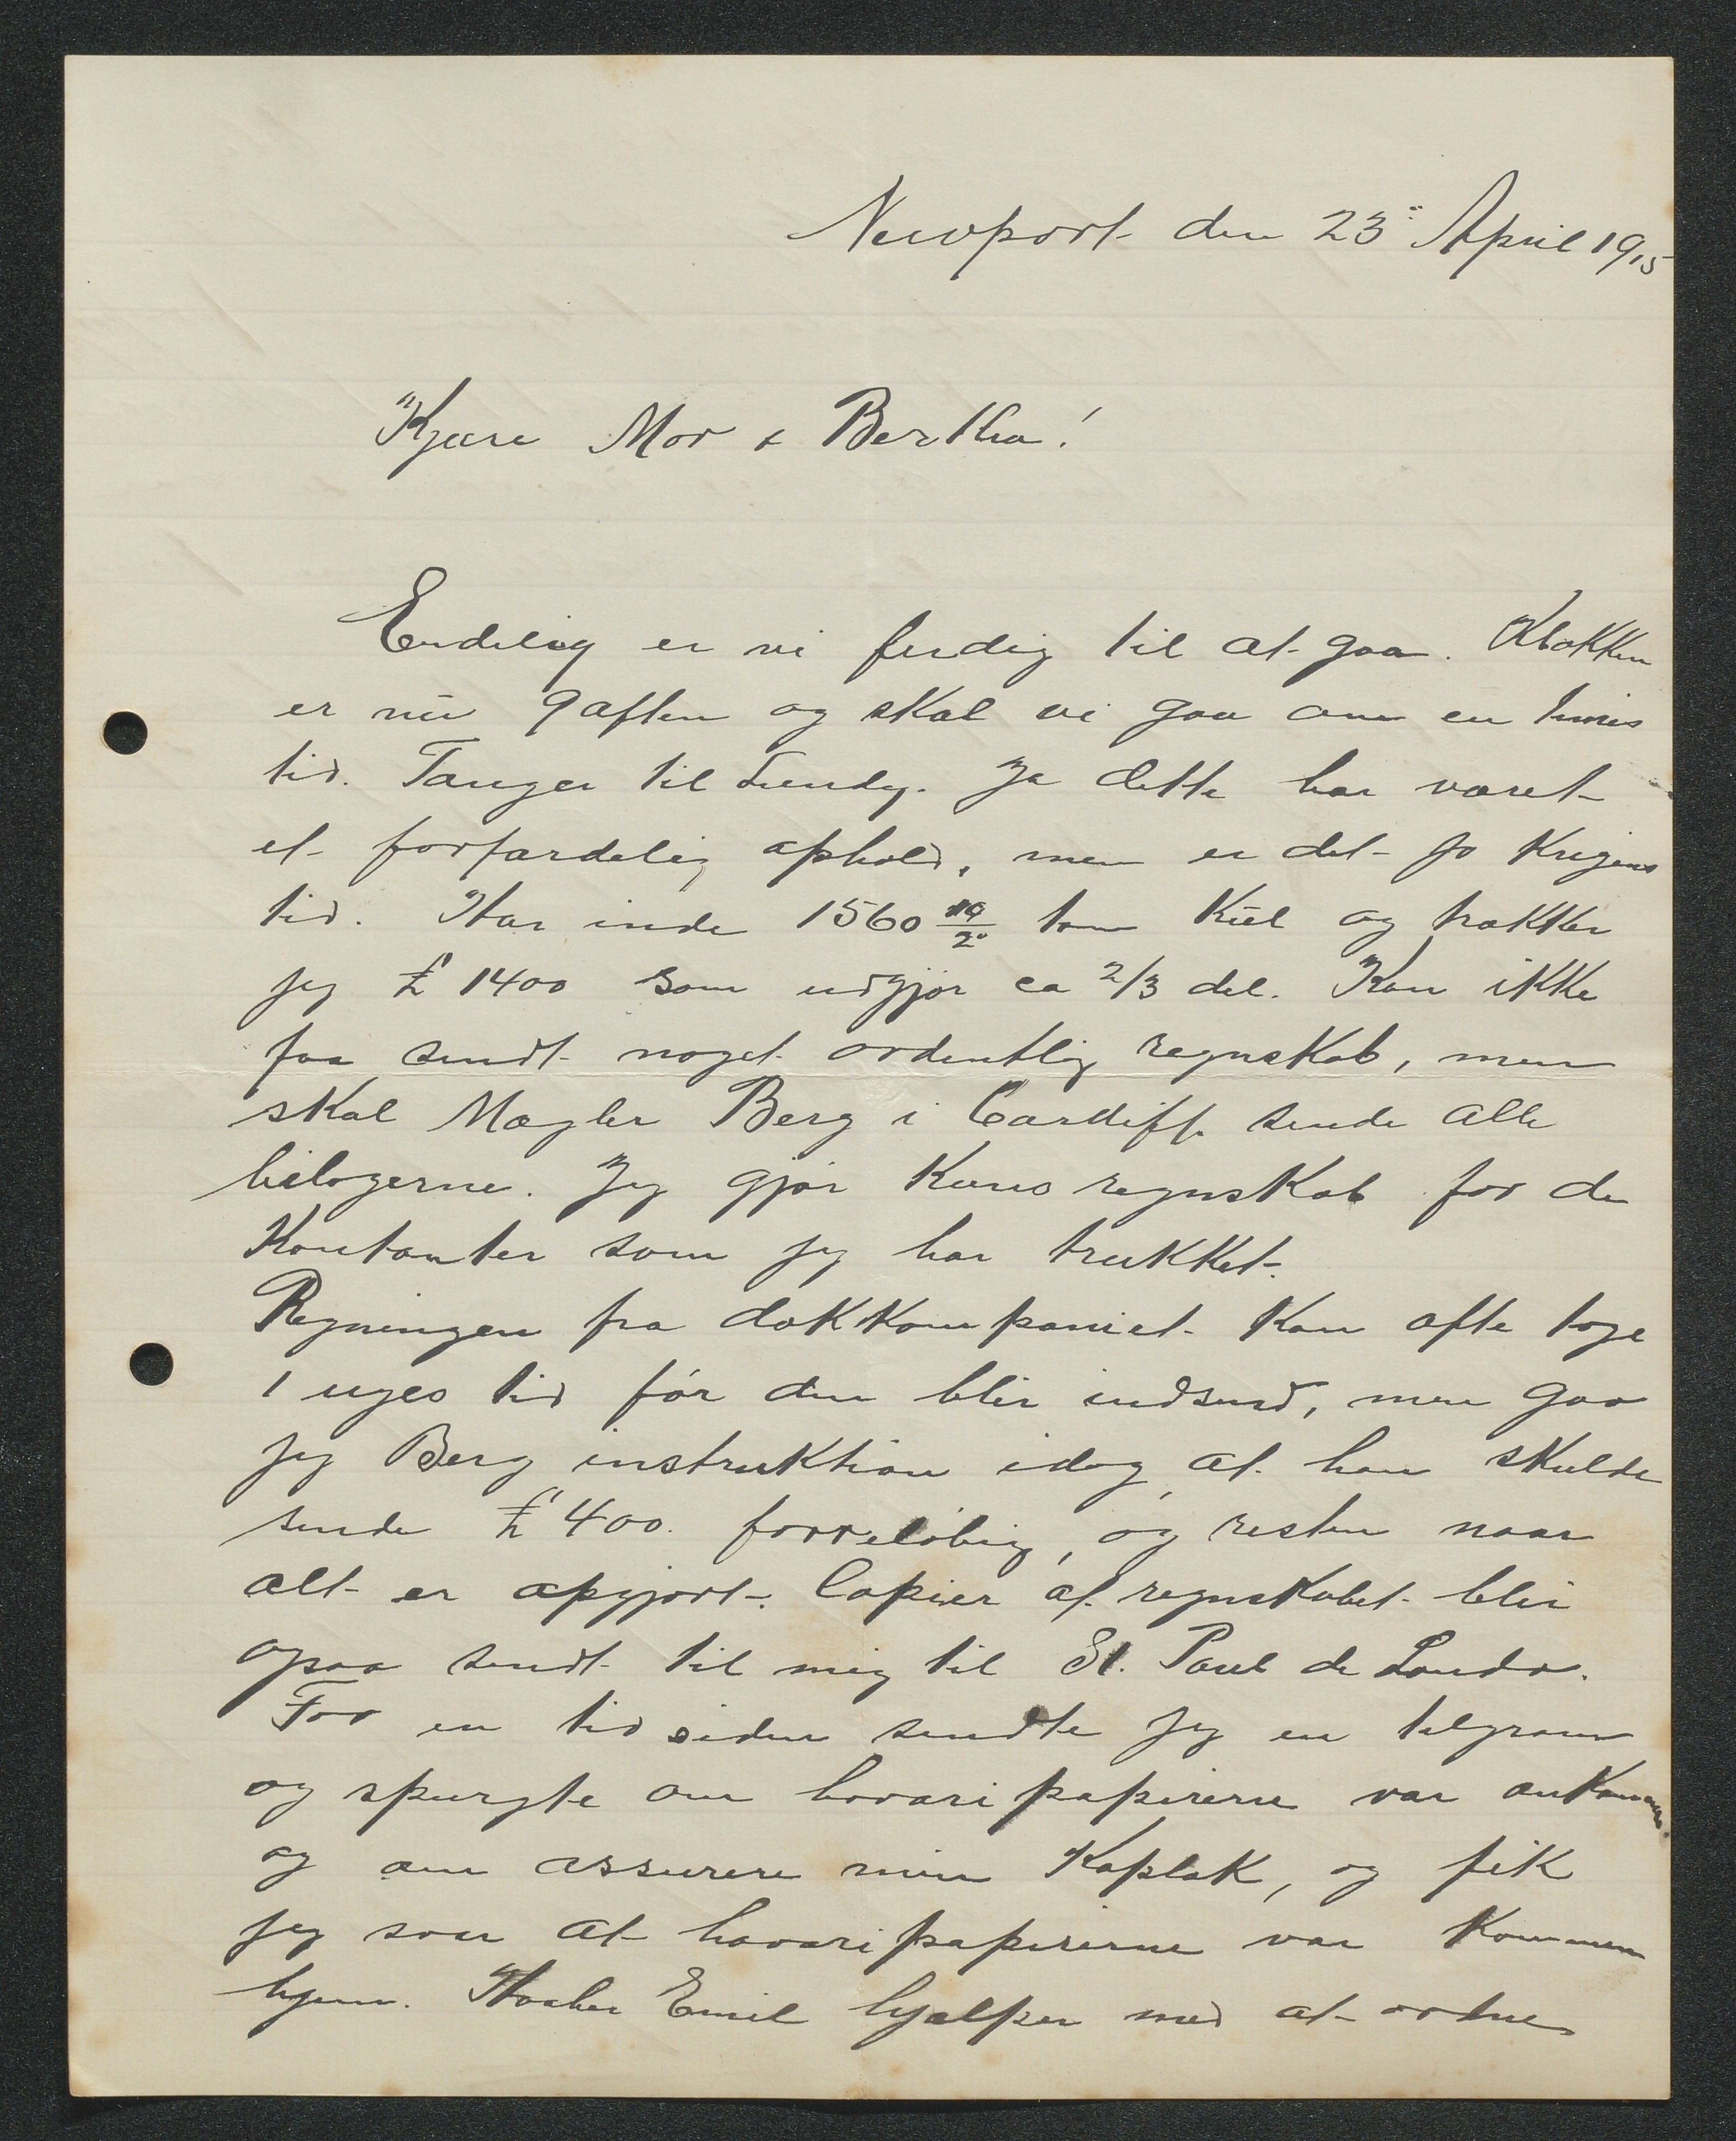 Newport den 23 April 1915
Kjære Mor & Bertha!
Endelig er vi ferdig til at gaa. Klokken
er nu 9 aften og skal vi gaa om en times
tid. Tauger til Lundy. Ja dette har været
et forfærdelig ophold, men er det jo Krigens
tid. Har inde 1560 19/20 ton Kul og trækker
jeg £ 1400 som udgjør ca 2/3 del. Kan ikke
faa sendt noget ordentlig regnskab, men
skal Mægler Berg i Cardiff sende alle
bilagerne. Jeg gjør Kuns regnskab for de
Kontanter som jeg har trukket.
Regningen fra dokkompaniet Kan ofte tage
1 uges tid før den blir indsend, men gav
jeg Berg instruktion idag, at han skulde
sende £ 400. forreløbig, og resten naar
alt er opgjort. Copier af regnskabet blir
ogsaa sendt til mig til St. Paul de Loando.
For en tid siden sendte jeg en telgram
og spurgte om havaripapirerne var ankommen
og om assurere min Kaplak, og fik
jeg svar at havaripapirerne var Kommen
hjem. Haaber Emil hjælper med at ordne